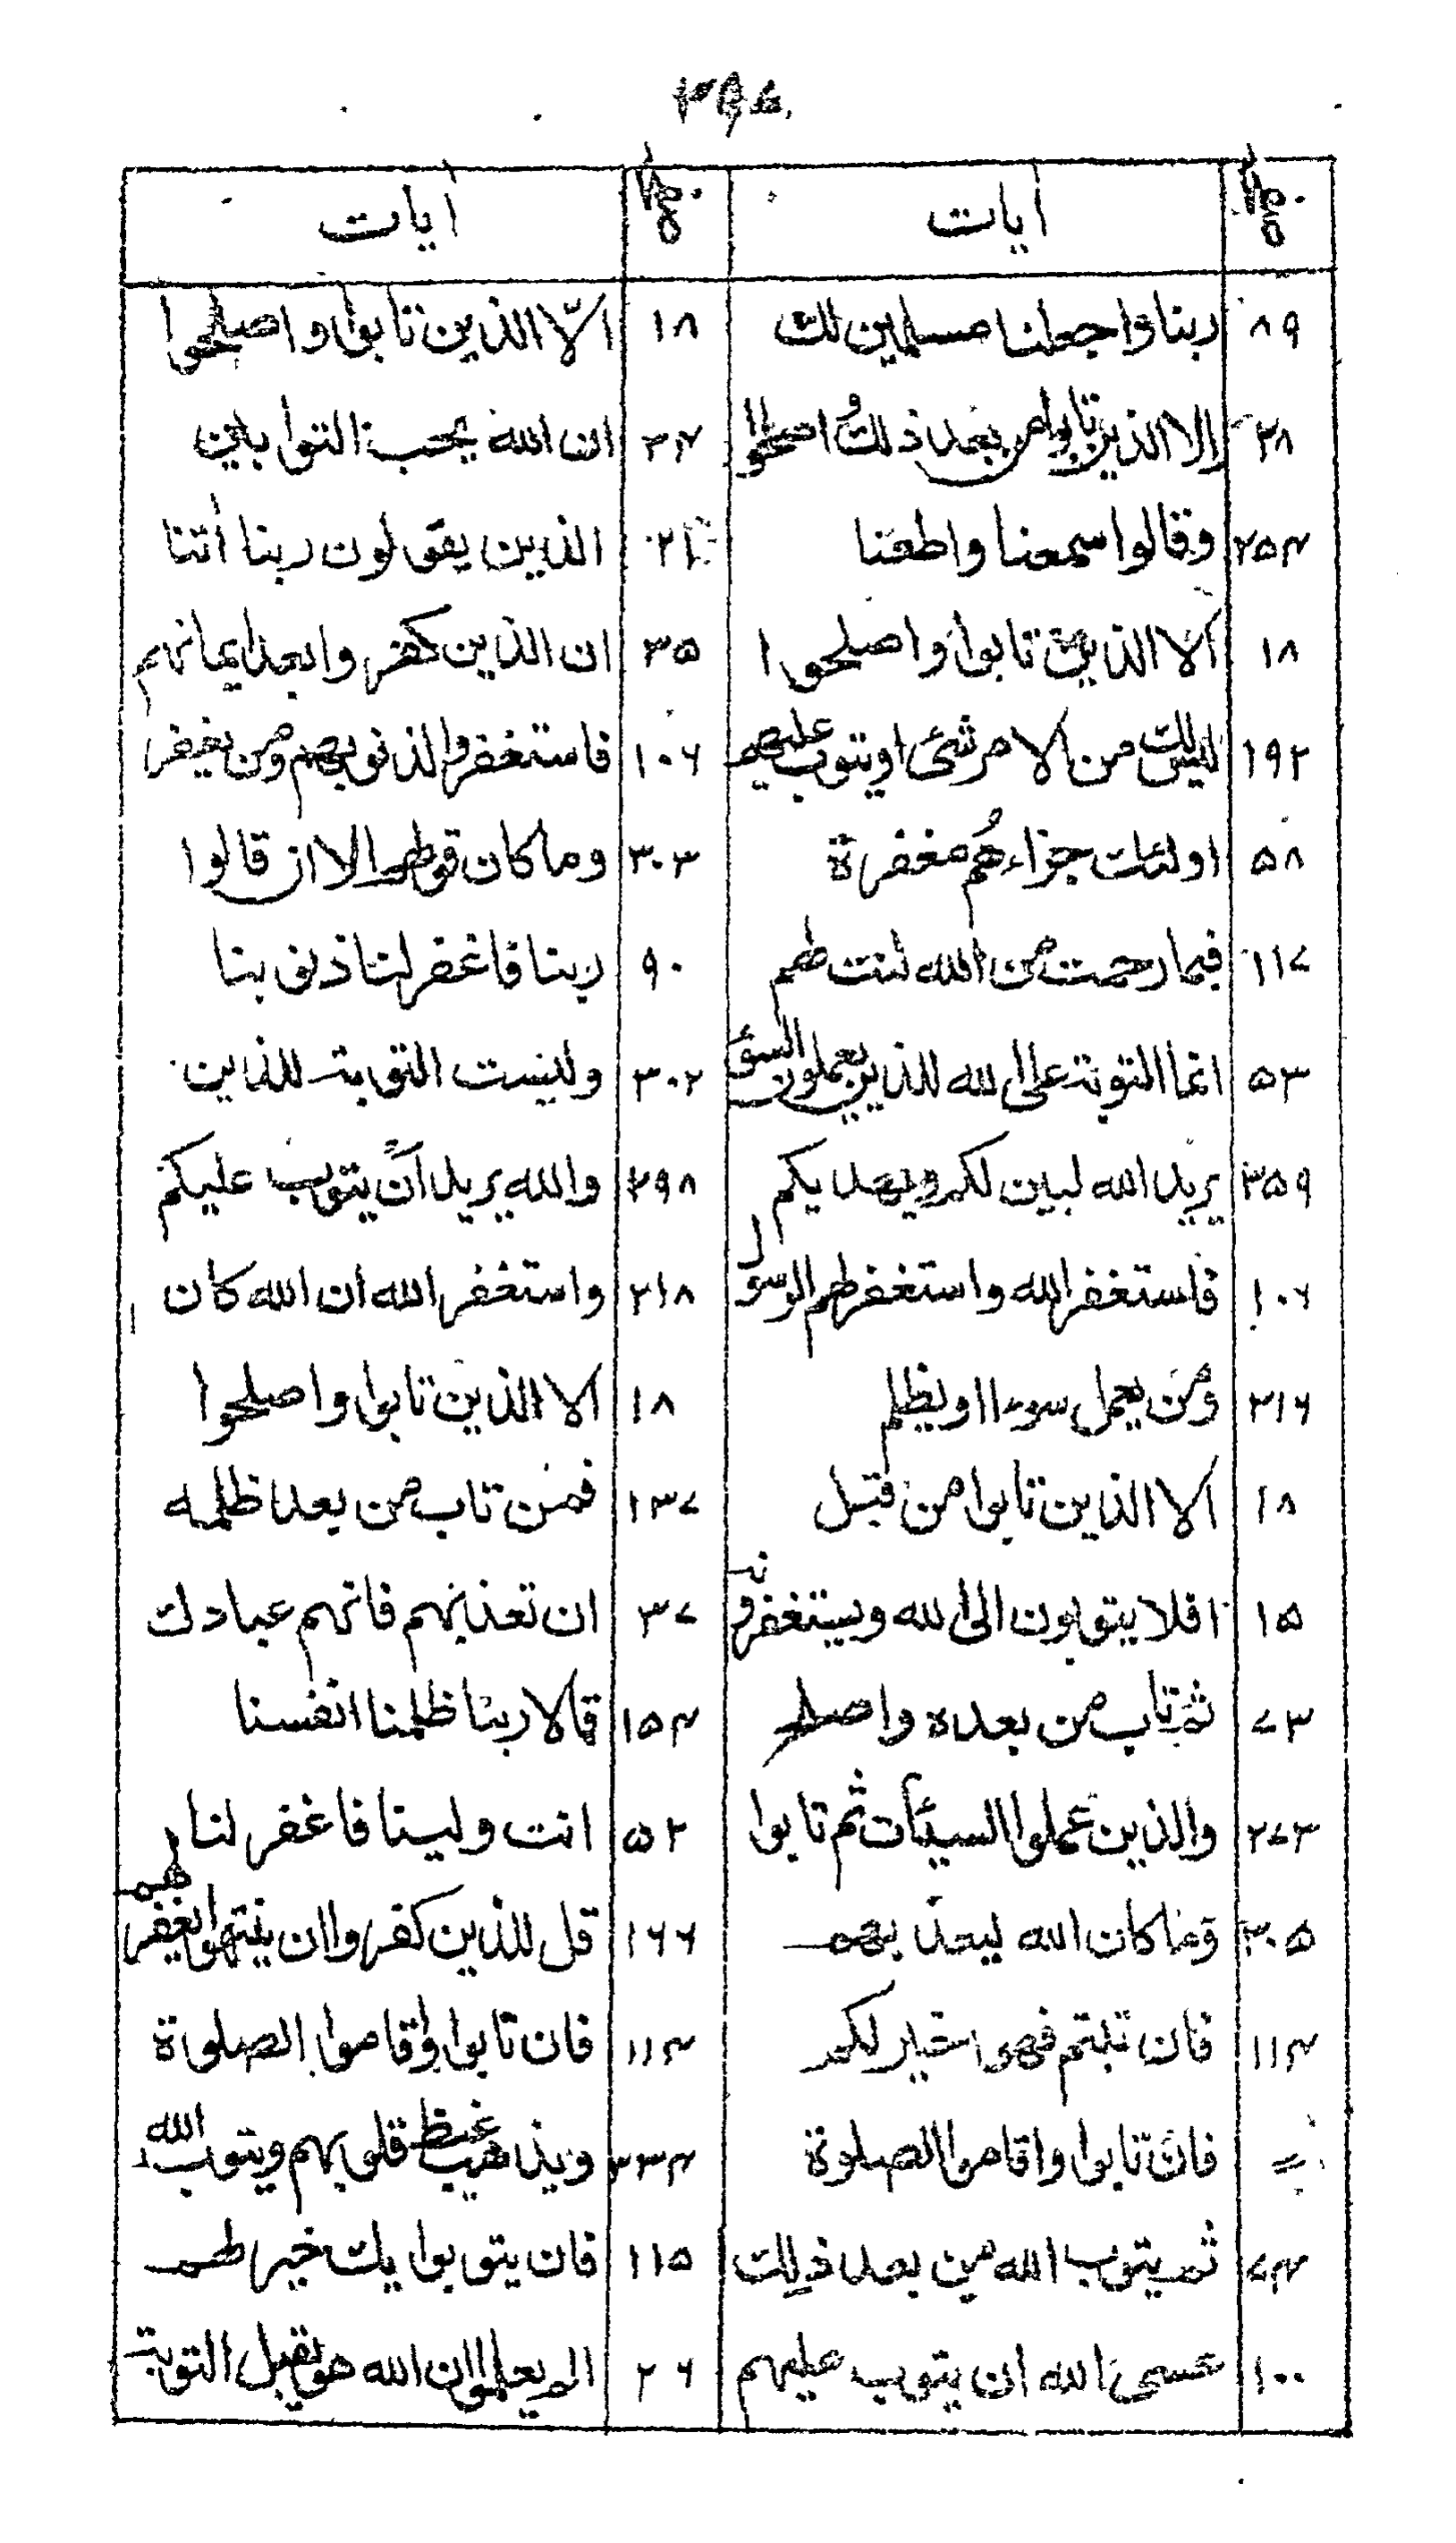 نمبر آیات نمبر آیات
۸۹ ربنا واجعلنا مسلمین لک ۱۸ الّا الذین تابوا واصلحوا
۲۸ الا الذین تابوا من بعد ذلک و اصلحوا ۳۴ ان اللہ یحب التوابین
۲۵۴ وقالوا سمعنا واطعنا ۲۱ الذین یقولون ربنا أتنا
۱۸ الا الذین تابوا واصلحوا ۳۵ ان الذین کفروا بعد ایمانهم
۱۹۲ لیس لک من الامر شئ اویتوب علیهم ۱۰۶ فاستغفروا لذنوبهم ومن یغفر
۵۸ اولئک جزاءهم مغفرة ۳۰۳ وما کان قولهم الا ان قالوا
۱۱۷ فبما رحمت من الله لنت لهم ۹۰ ربنا فاغفرلنا ذنوبنا
۵۳ انما التوبة علی الله للذین یعملون السوٓء ۳۰۲ ولیست التوبة للذین
۳۵۹ یرید الله لیبین لکم ویهدیکم ۲۹۸ والله یرید ان یتوب علیکم
۱۰۶ فاستغفرالله واستغفرلهم الرسول ۲۱۸ واستغفرالله ان الله کان
۳۱۶ ومن یعمل سوءا اویظلم ۱۸ الا الذین تابوا واصلحوا
۱۸ الا الذین تابوا من قبل ۱۳۷ فمن تاب من بعد ظلمه
۱۵ افلا یتوبون الی الله ویستغفرونه ۳۷ ان تعذبهم فانهم عبادک
۷۳ ثم تاب من بعده واصلح ۱۵۴ قالا ربنا ظلمنا انفسنا
۲۷۳ والذین عملوا السیئات ثم تابوا ۵۲ انت ولینا فاغفر لنا
۳۰۵ وما کان الله لیعذبهم ۱۶۶ قل للذین کفروا ان ینتهوا یغفر لهم
۱۱۴ فان تبتم فهوا خیر لکم ۱۱۴ فان تابوا واقاموا الصلوة
= فان تابوا واقاموا الصلوة ۳۳۴ ویذهب غیظ قلوبهم ویتوب الله
۷۴ ثم یتوب الله من بعد ذلک ۱۱۵ فان یتوبوا یک خیرا لهم
۱۰۰ عسی الله ان یتوب علیهم ۲۶ الم یعلموا ان الله هو یقبل التوبة